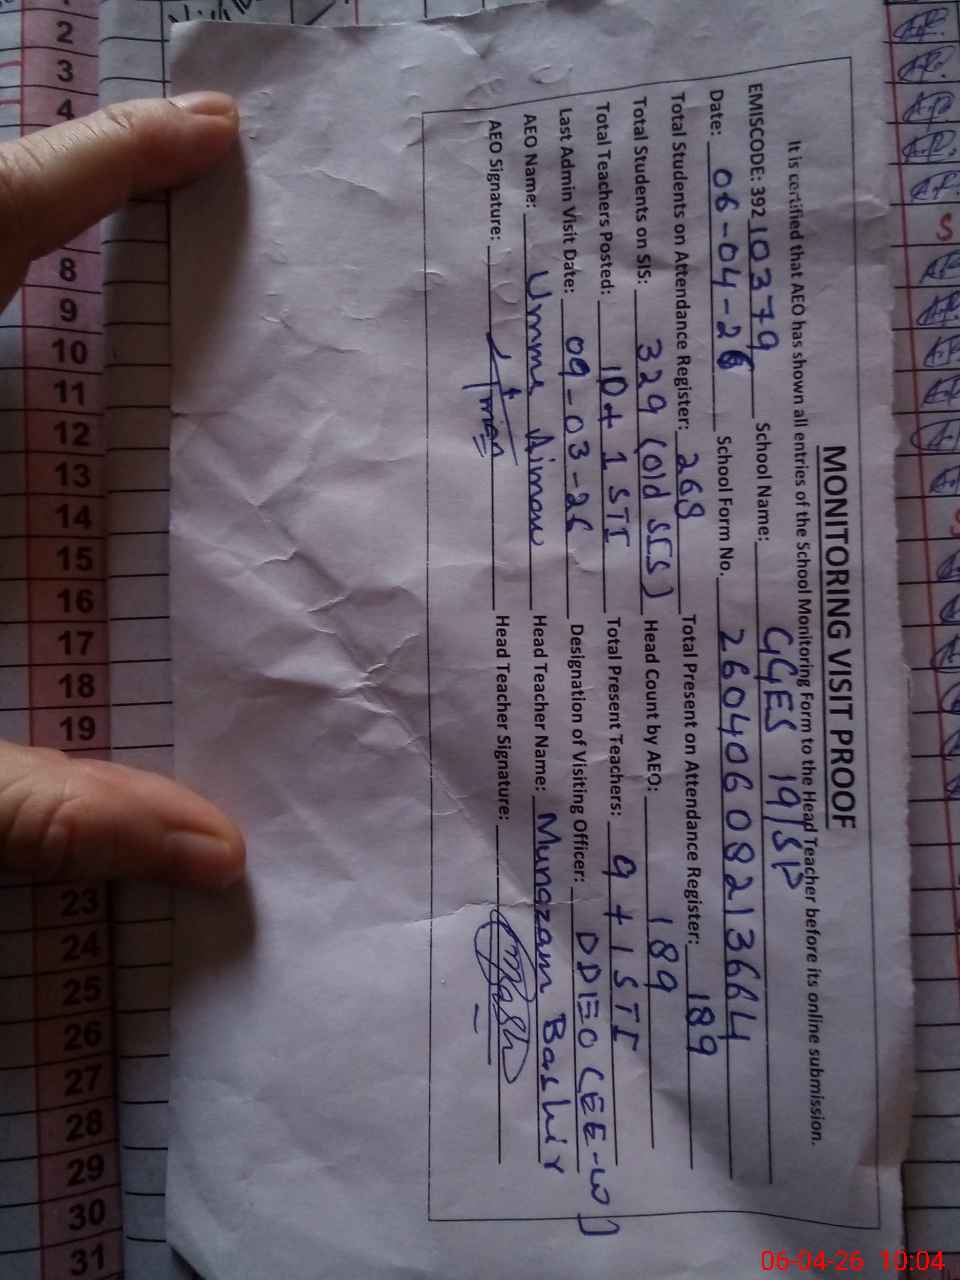 MONITORING VISIT PROOF
It is certified that AEO has shown all entries of the School Monitoring Form to the Head Teacher before its online submission.
EMISCODE: 392 10379 School Name: GGES 19/SP
Date: 06-04-26 School Form No. 260406082136664
Total Students on Attendance Register: 268 Total Present on Attendance Register: 189
Total Students on SIS: 329 (old SIS) Head Count by AEO: 189
Total Teachers Posted: 10+1 STI Total Present Teachers: 9+1 STI
Last Admin Visit Date: 09-03-26 Designation of Visiting Officer: DDEO (EE-W)
AEO Name: Umme Aiman Head Teacher Name: Munazam Bashir
AEO Signature: Head Teacher Signature:
2
3
4
8
9
10
11
12
13
14
15
16
17
18
19
23
24
25
26
27
28
29
30
31
06-04-26 10:04